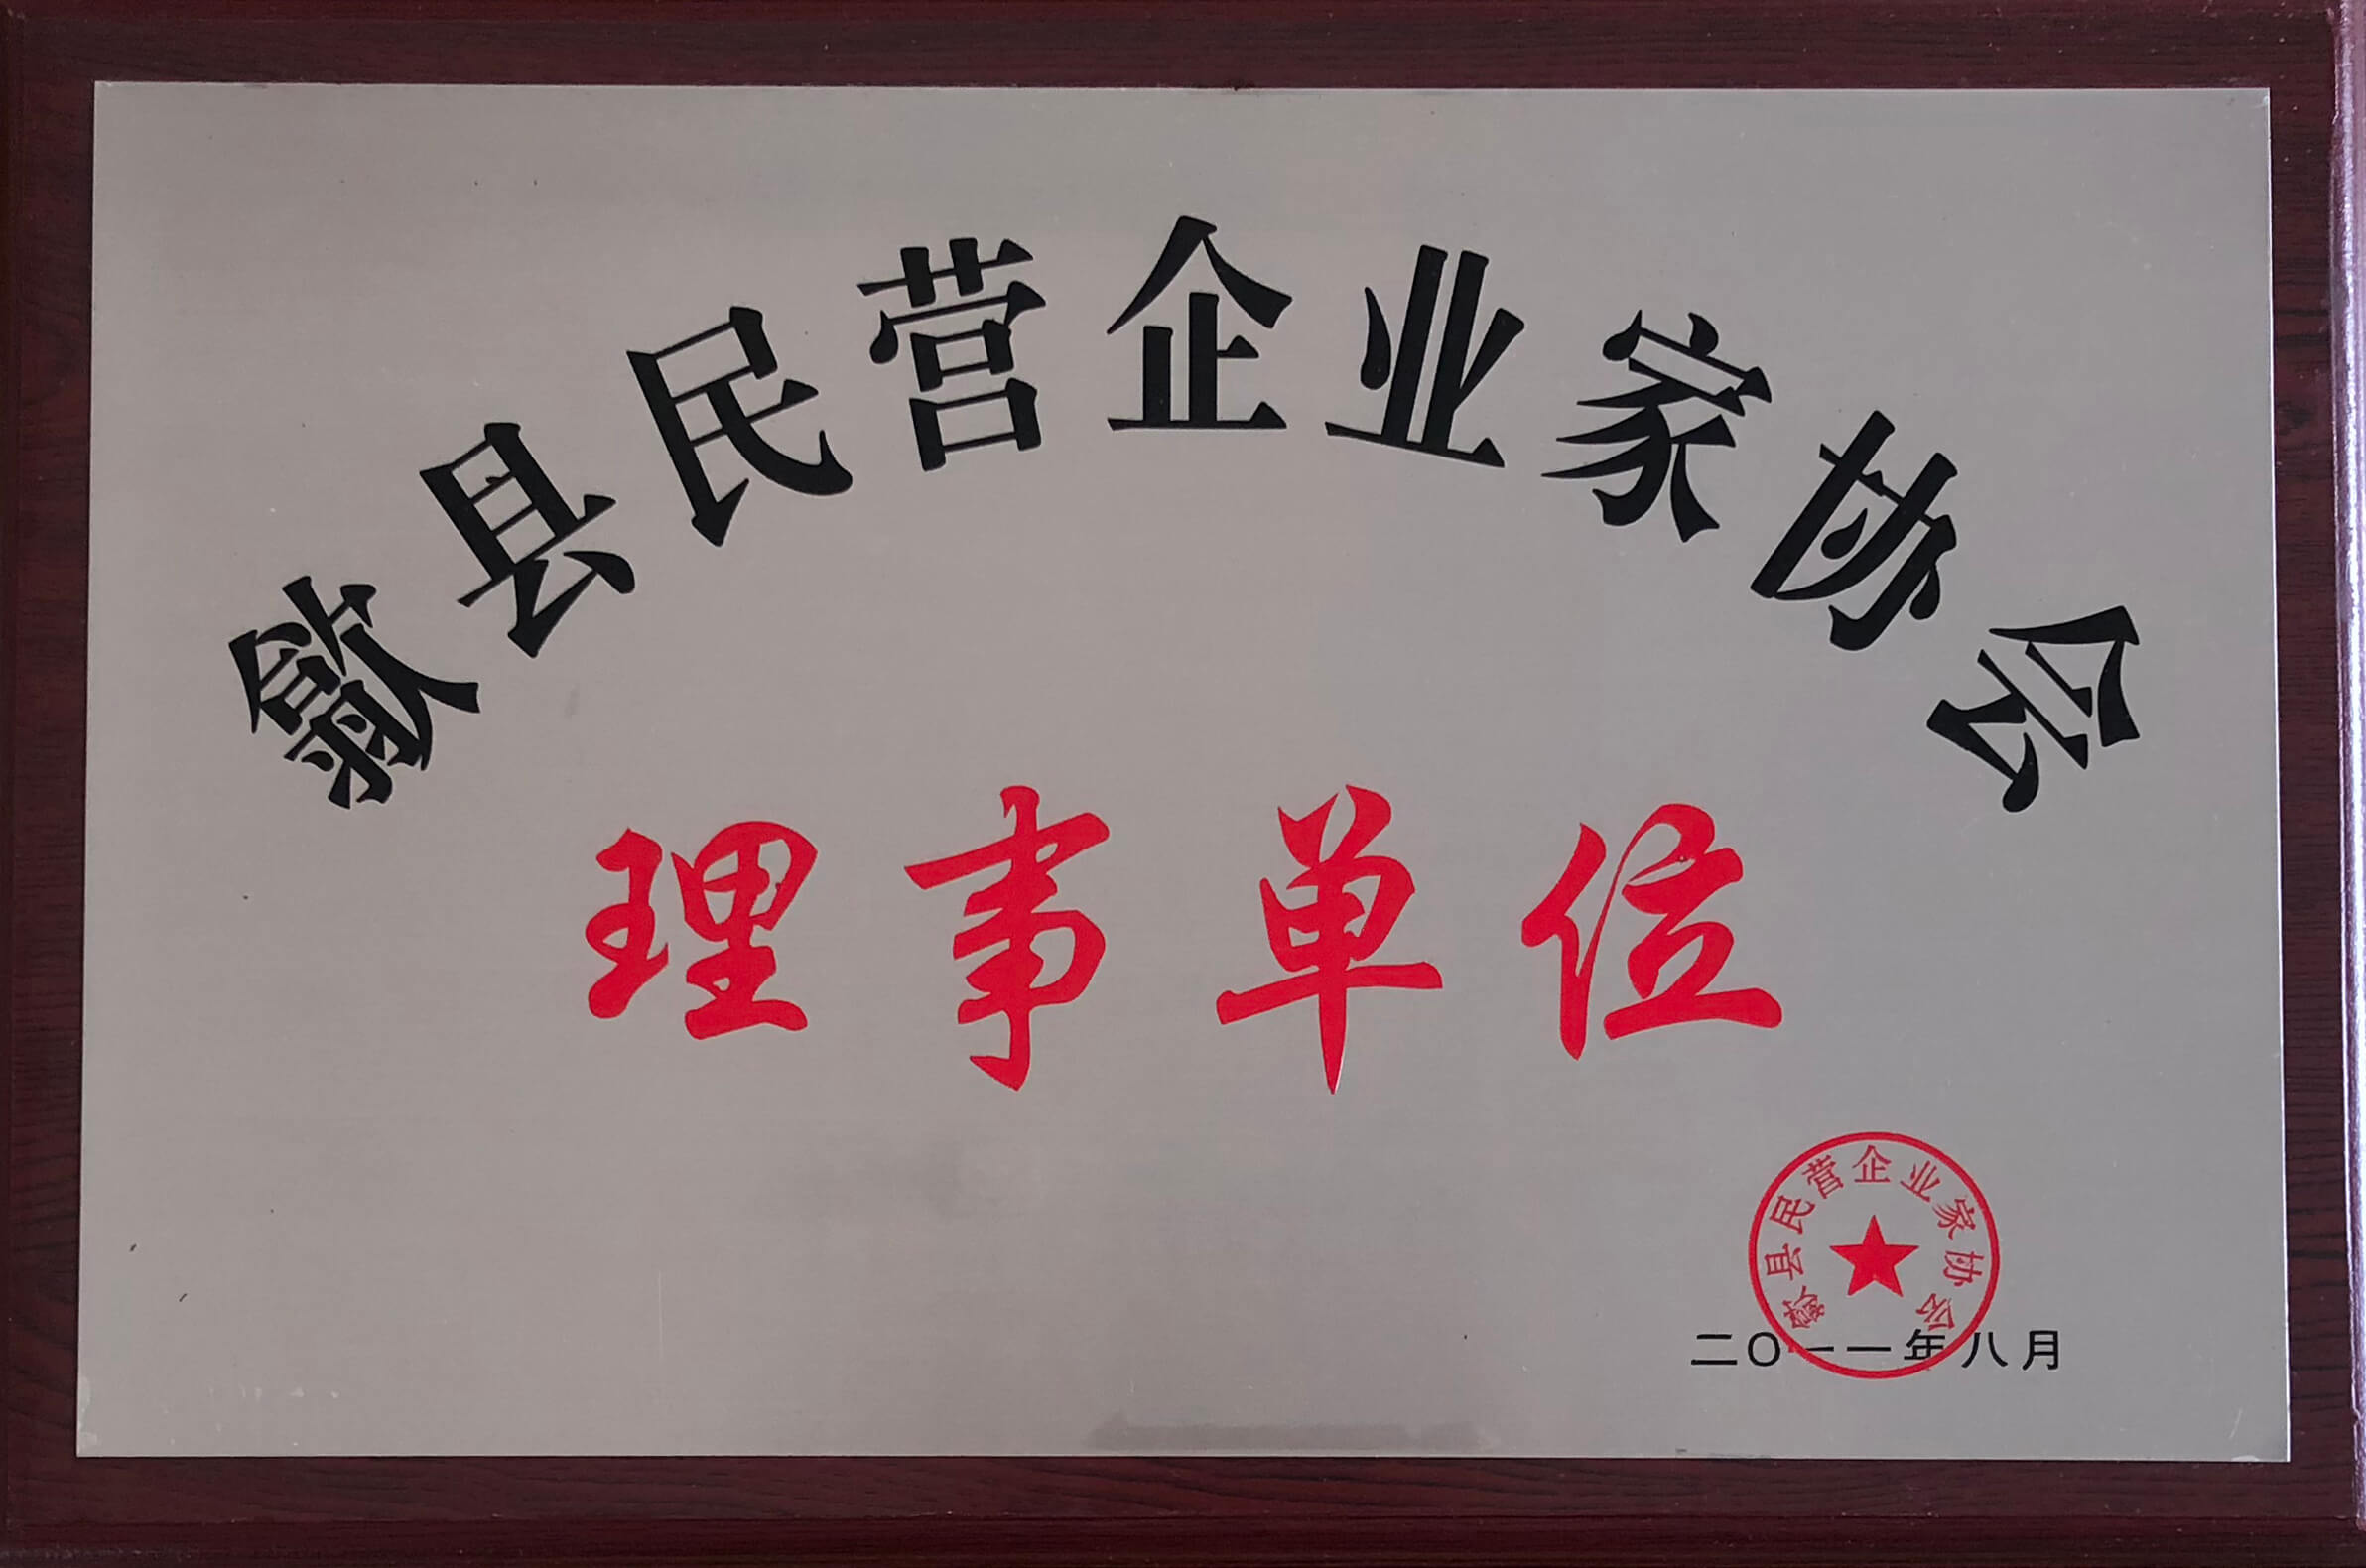 歙县民营企业家协会
理事单位
歙县民营企业家协会
二〇一一年八月